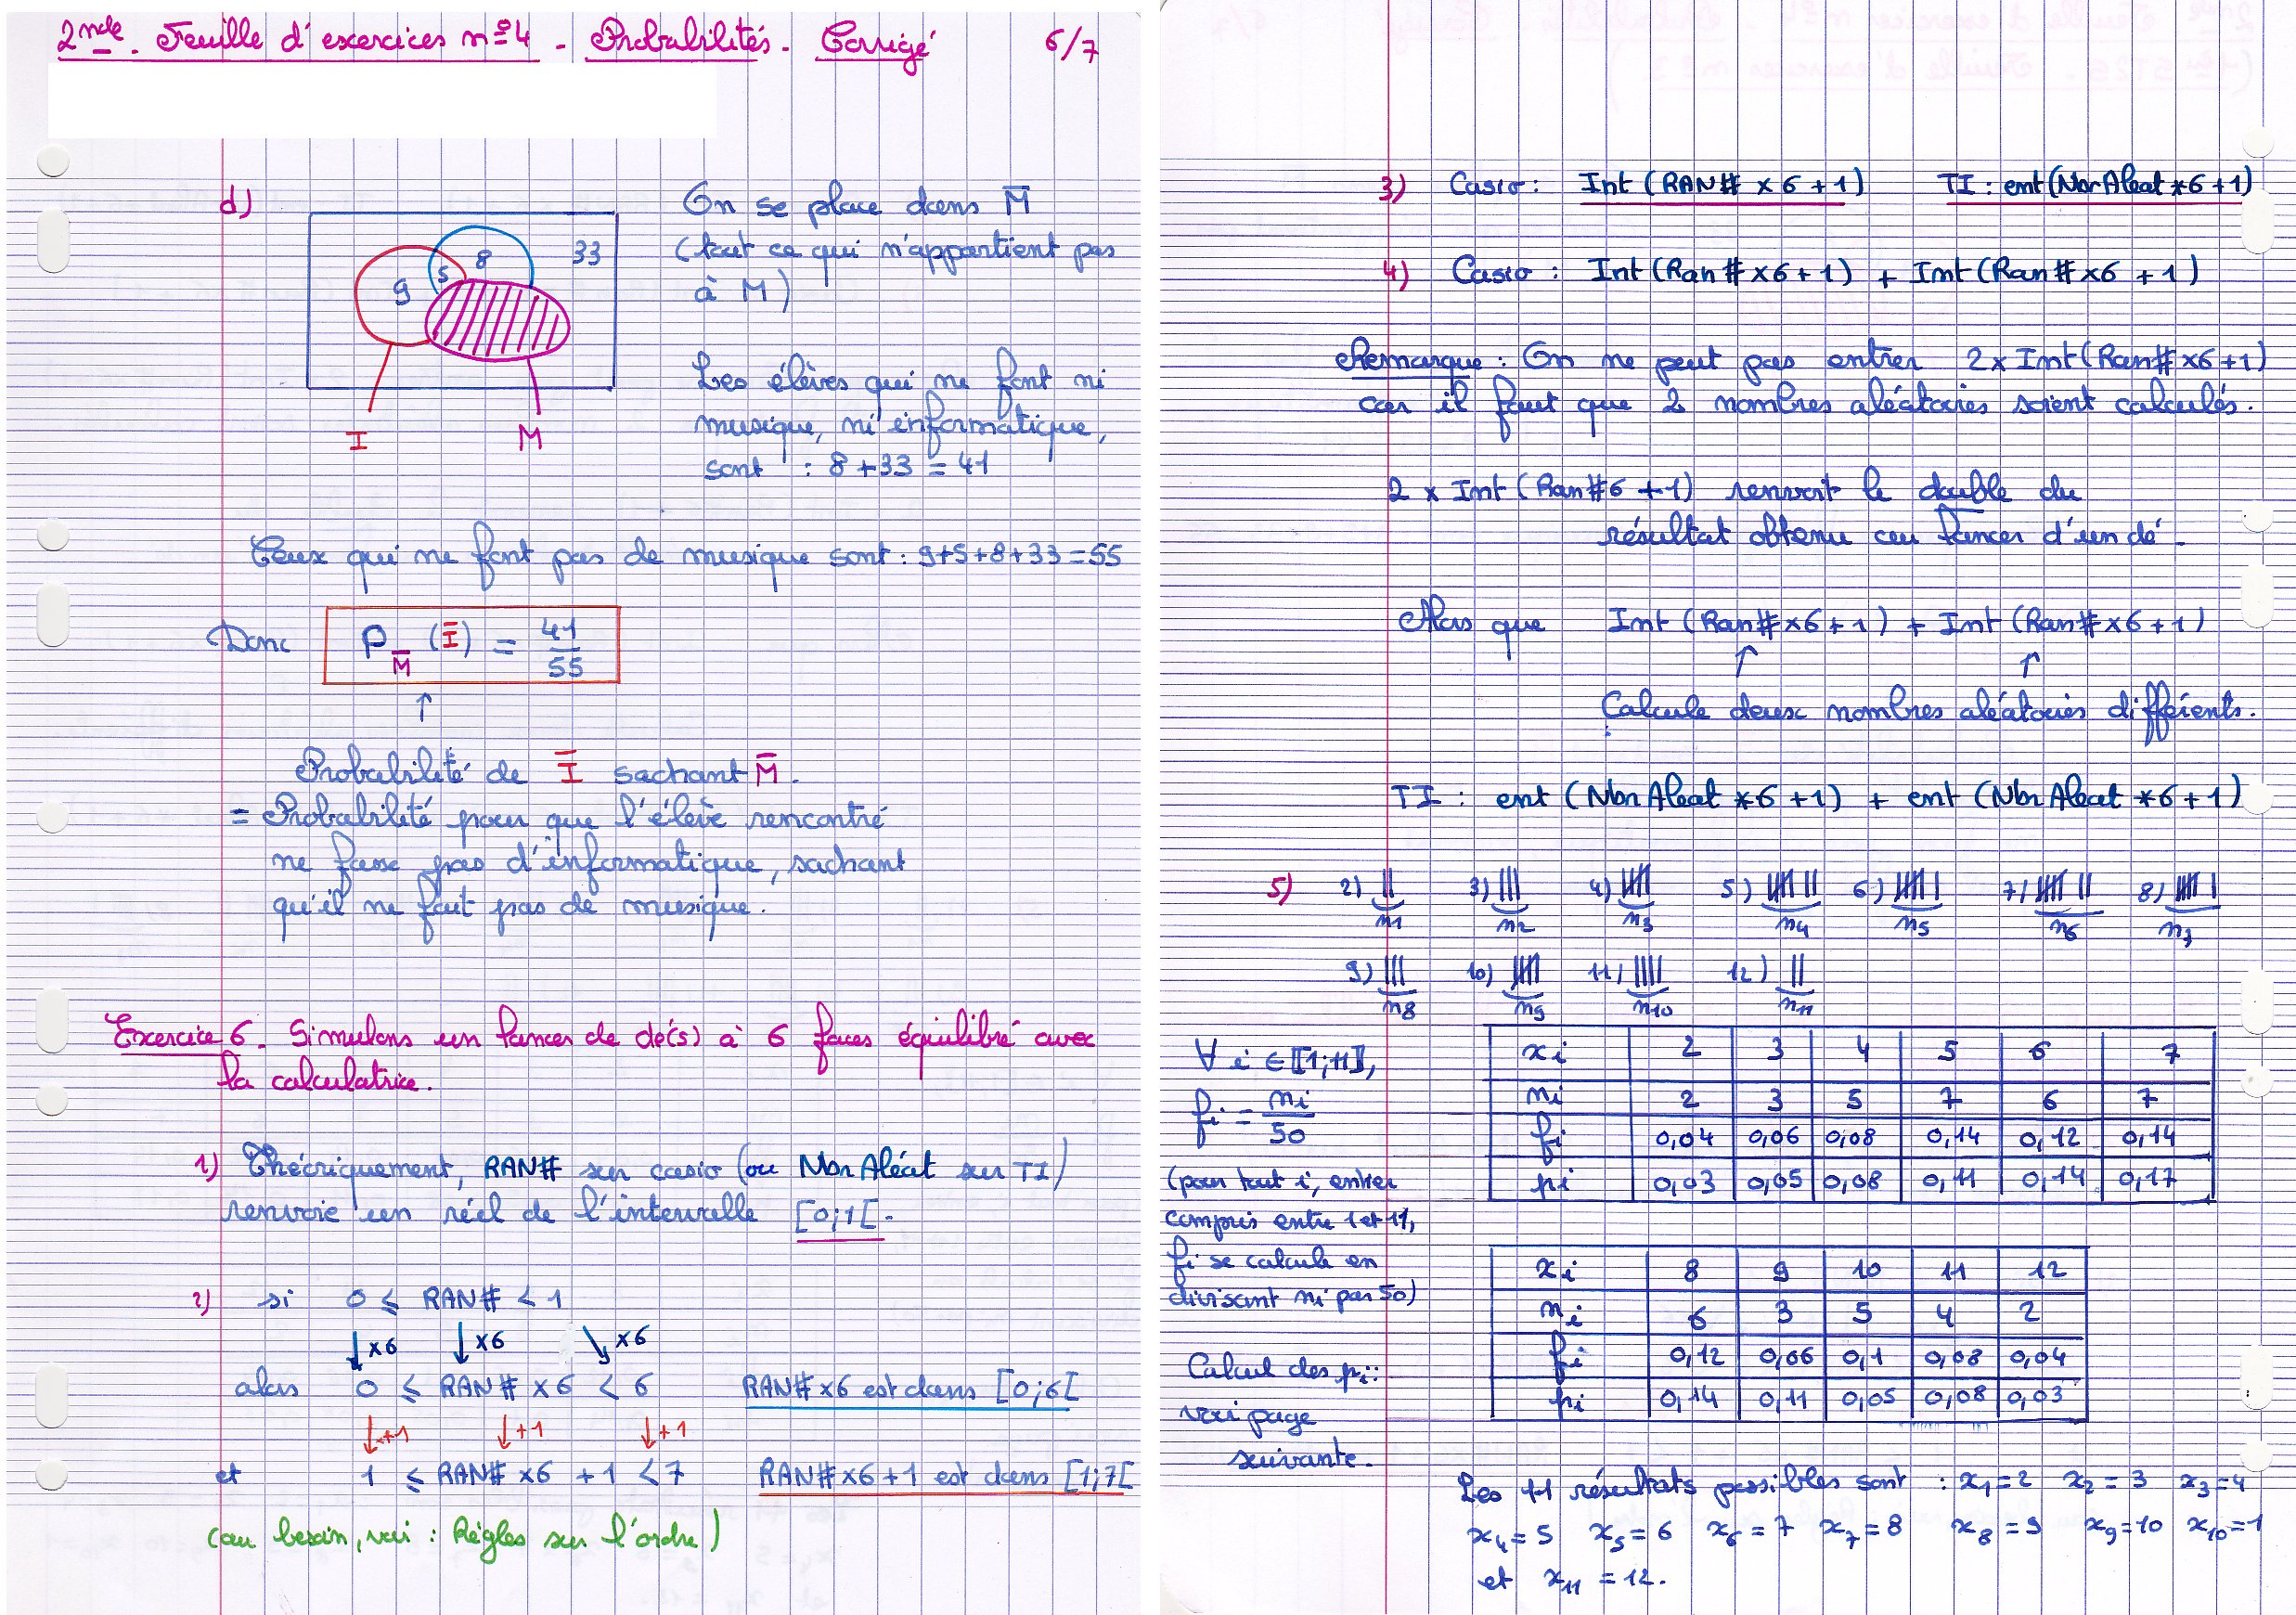 2nde. Feuille d'exercices n°4 - Probabilités - Corrigé 6/7
d)
9 5 8 33
I M
On se place dans M̅
(tout ce qui n'appartient pas
à M)
Les élèves qui ne font ni
musique, ni informatique,
sont : 8 + 33 = 41
Ceux qui ne font pas de musique sont : 9+5+8+33 = 55
Donc P_M̅ (I̅) = 41/55
↑
Probabilité de I̅ sachant M̅.
= Probabilité pour que l'élève rencontré
ne fasse pas d'informatique, sachant
qu'il ne fait pas de musique.
Exercice 6. Simulons un lancer de dé(s) à 6 faces équilibré avec
la calculatrice.
1) Théoriquement, RAN# sur casio (ou NbrAléat sur TI)
renvoie un réel de l'intervalle [0;1[.
2) si 0 ≤ RAN# < 1
↓×6 ↓×6 ↘×6
alors 0 ≤ RAN# ×6 < 6 RAN#×6 est dans [0;6[
↓+1 ↓+1 ↓+1
et 1 ≤ RAN# ×6 +1 < 7 RAN#×6+1 est dans [1;7[
(au besoin, voir : Règles sur l'ordre)
3) Casio : Int (RAN# ×6+1) TI : ent(NbrAleat *6+1)
4) Casio : Int(Ran#×6+1) + Int(Ran#×6 +1)
Remarque : On ne peut pas entrer 2×Int(Ran#×6+1)
car il faut que 2 nombres aléatoires soient calculés.
2 × Int (Ran#6 +1) renvoit le double du
résultat obtenu au lancer d'un dé.
Alors que Int (Ran#×6+1) + Int (Ran#×6+1)
↑ ↑
Calcule deux nombres aléatoires différents.
TI : ent (NbrAleat *6+1) + ent (NbrAleat *6+1)
5) 2) || 3) ||| 4) |||| 5) |||| || 6) |||| | 7) |||| || 8) |||| |
n1 n2 n3 n4 n5 n6 n7
9) ||| 10) |||| 11) |||| 12) ||
n8 n9 n10 n11
∀ i ∈ ⟦1;11⟧,
fi = ni/50
(pour tout i, entier
compris entre 1 et 11,
fi se calcule en
divisant ni par 50)
Calcul des pi :
voir page
suivante.
xi 2 3 4 5 6 7
ni 2 3 5 7 6 7
fi 0,04 0,06 0,08 0,14 0,12 0,14
pi 0,03 0,05 0,08 0,11 0,14 0,17
xi 8 9 10 11 12
ni 6 3 5 4 2
fi 0,12 0,06 0,1 0,08 0,04
pi 0,14 0,11 0,05 0,08 0,03
Les 11 résultats possibles sont : x1=2 x2 = 3 x3=4
x4=5 x5=6 x6=7 x7=8 x8=9 x9=10 x10=1
et x11 = 12.